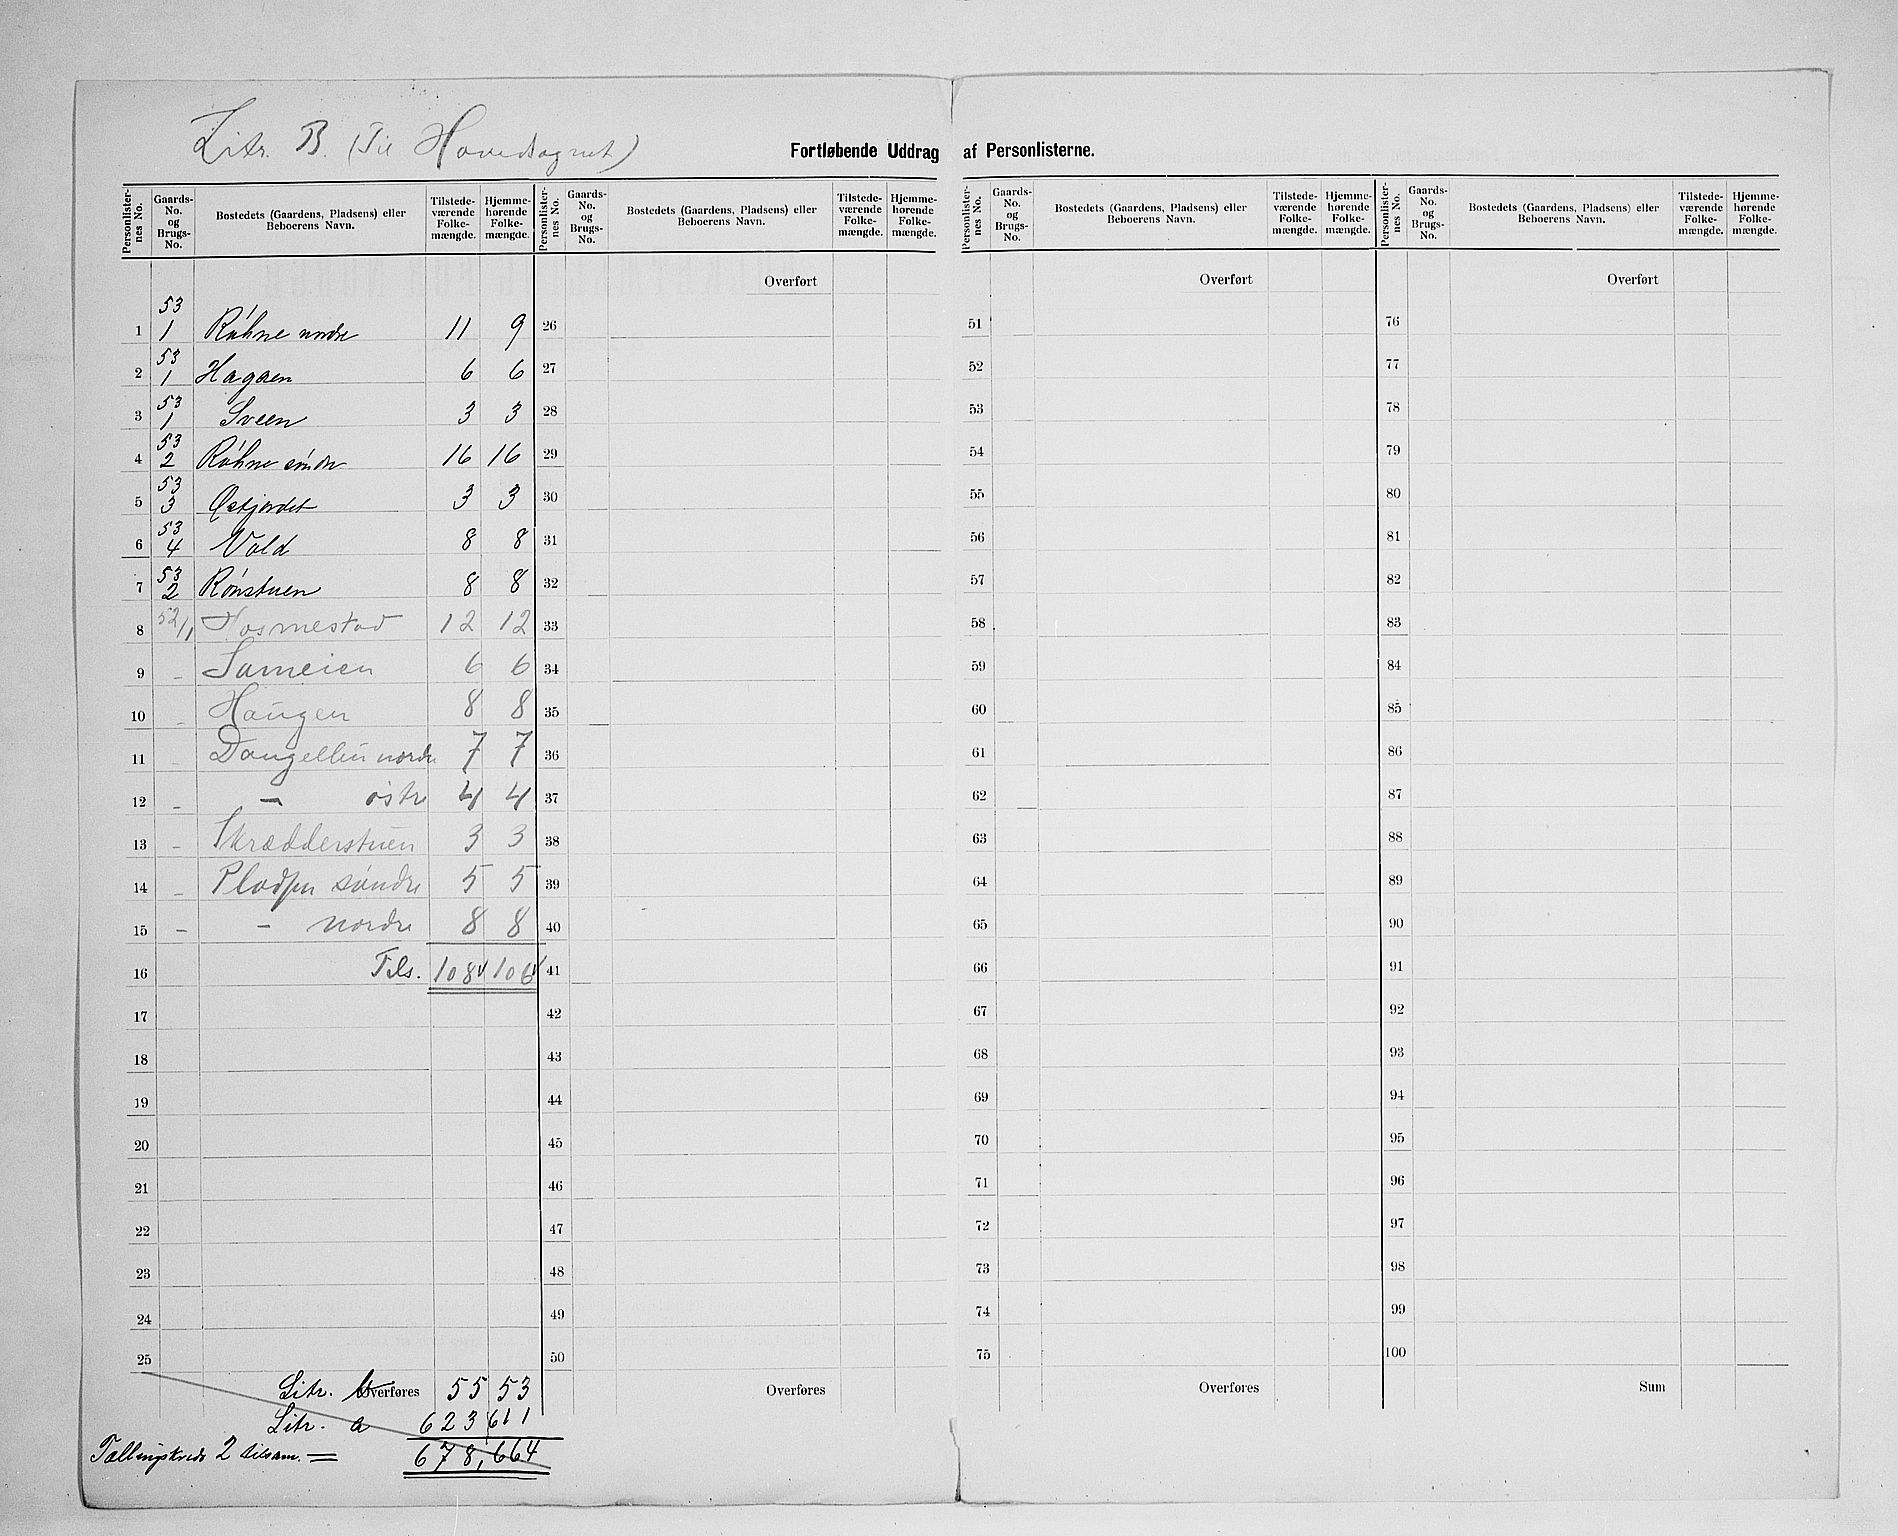 Litr. B. (Til Hovedsognet)
Fortløbende Uddrag af Personlisterne.
Personlister-nes No. Gaards-No. og Brugs-No. Bostedets (Gaardens, Pladsens) eller Beboerens Navn. Tilstede-værende Folke-mængde. Hjemme-hørende Folke-mængde.
Personlister-nes No. Gaards-No. og Brugs-No. Bostedets (Gaardens, Pladsens) eller Beboerens Navn. Tilstede-værende Folke-mængde. Hjemme-hørende Folke-mængde.
Personlister-nes No. Gaards-No. og Brugs-No. Bostedets (Gaardens, Pladsens) eller Beboerens Navn. Tilstede-værende Folke-mængde. Hjemme-hørende Folke-mængde.
Personlister-nes No. Gaards-No. og Brugs-No. Bostedets (Gaardens, Pladsens) eller Beboerens Navn. Tilstede-værende Folke-mængde. Hjemme-hørende Folke-mængde.
Overført Overført Overført
1 53 1 Røhne nordre 11 9 26 51 76
2 53 1 Hagaen 6 6 27 52 77
3 53 1 Sveen 3 3 28 53 78
4 53 2 Røhne søndre 16 16 29 54 79
5 53 3 Østjordet 3 3 30 55 80
6 53 4 Vold 8 8 31 56 81
7 53 2 Rønstuen 8 8 32 57 82
8 52/1 Hosmestad 12 12 33 58 83
9 - Sameien 6 6 34 59 84
10 - Haugen 8 8 35 60 85
11 - nordre 7 7 36 61 86
12 - - østre 4 4 37 62 87
13 - Skrædderstuen 3 3 38 63 88
14 - Pladsen søndre 5 5 39 64 89
15 - - nordre 8 8 40 65 90
16 Tils. 108 106 41 66 91
17 42 67 92
18 43 68 93
19 44 69 94
20 45 70 95
21 46 71 96
22 47 72 97
23 48 73 98
24 49 74 99
25 50 75 100
Litr. b Overføres 55 53 Overføres Overføres Sum
Litr. a 623 611
Tællingskreds 2 tilsam. = 678, 664